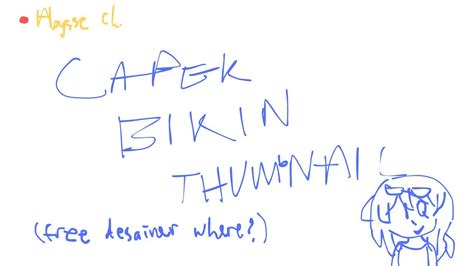 Ch.
CAPEK
BIKIN
THUMBNAIL
(free desainer where?)